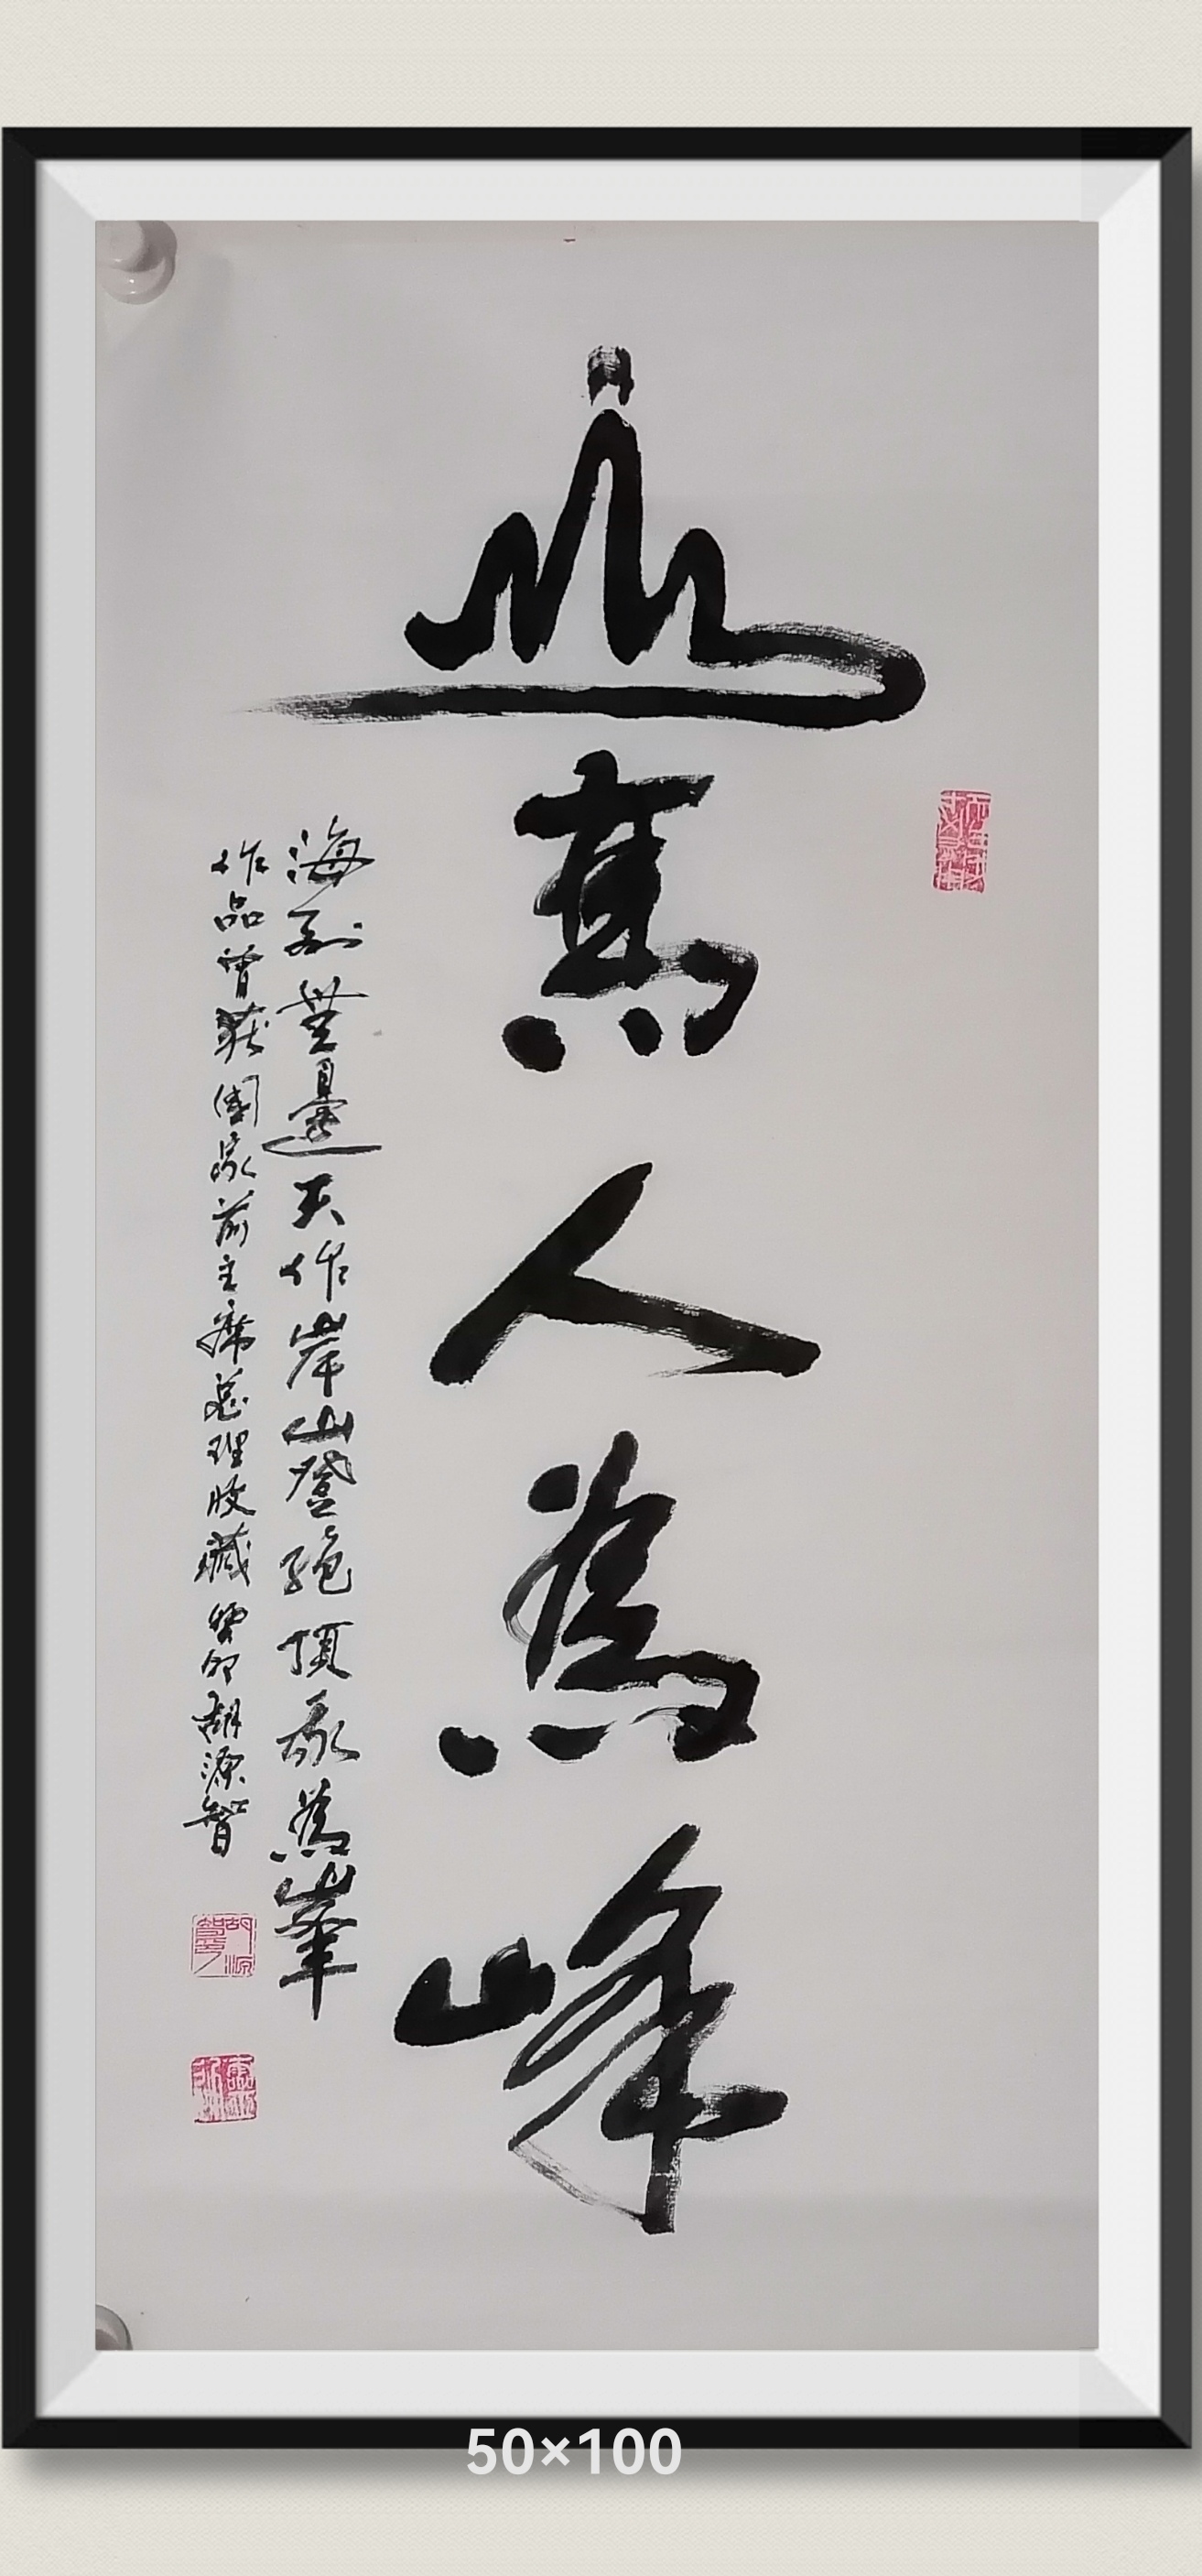 山高人為峰
海到無邊天作岸山登絕頂我為峯
作品曾獲國家前主席总理收藏癸卯胡源智
胡源智印
50×100